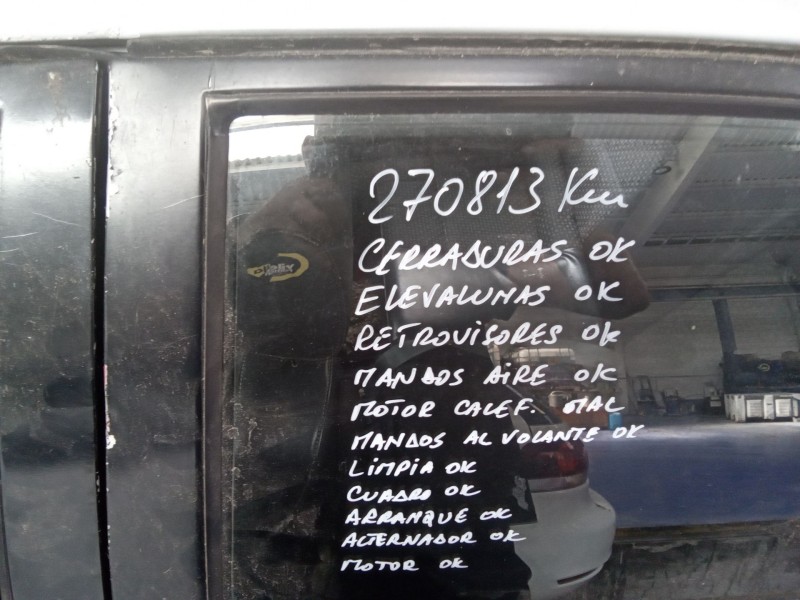 270813 Km
CERRADURAS OK
ELEVALUNAS OK
RETROVISORES OK
MANDOS AIRE OK
MOTOR CALEF. MAL
MANDOS AL VOLANTE OK
LIMPIA OK
CUADRO OK
ARRANQUE OK
ALTERNADOR OK
MOTOR OK